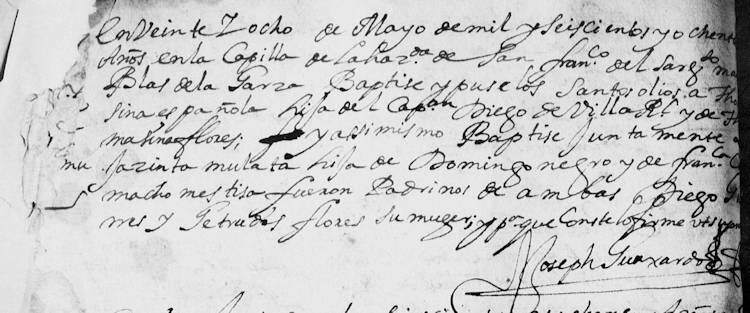 en Veinte Y ocho de Mayo de mil y seiscientos y ochen
Años en la Capilla de la haz.da de San franco del Sargto ma
Blas de la Garza Baptise y puse los santos olios a Tho
sina española hija del Capan Diego de Villa Rl y de
marina flores; y assimismo Baptise Junta mente
mu Jazinta mulata hija de Domingo negro y de franca
macho mestisa fueron Padrinos de ambas Diego
rres y Getrudes flores su muger; y pr que Conste lo firme ut supra
Joseph Guaxardo